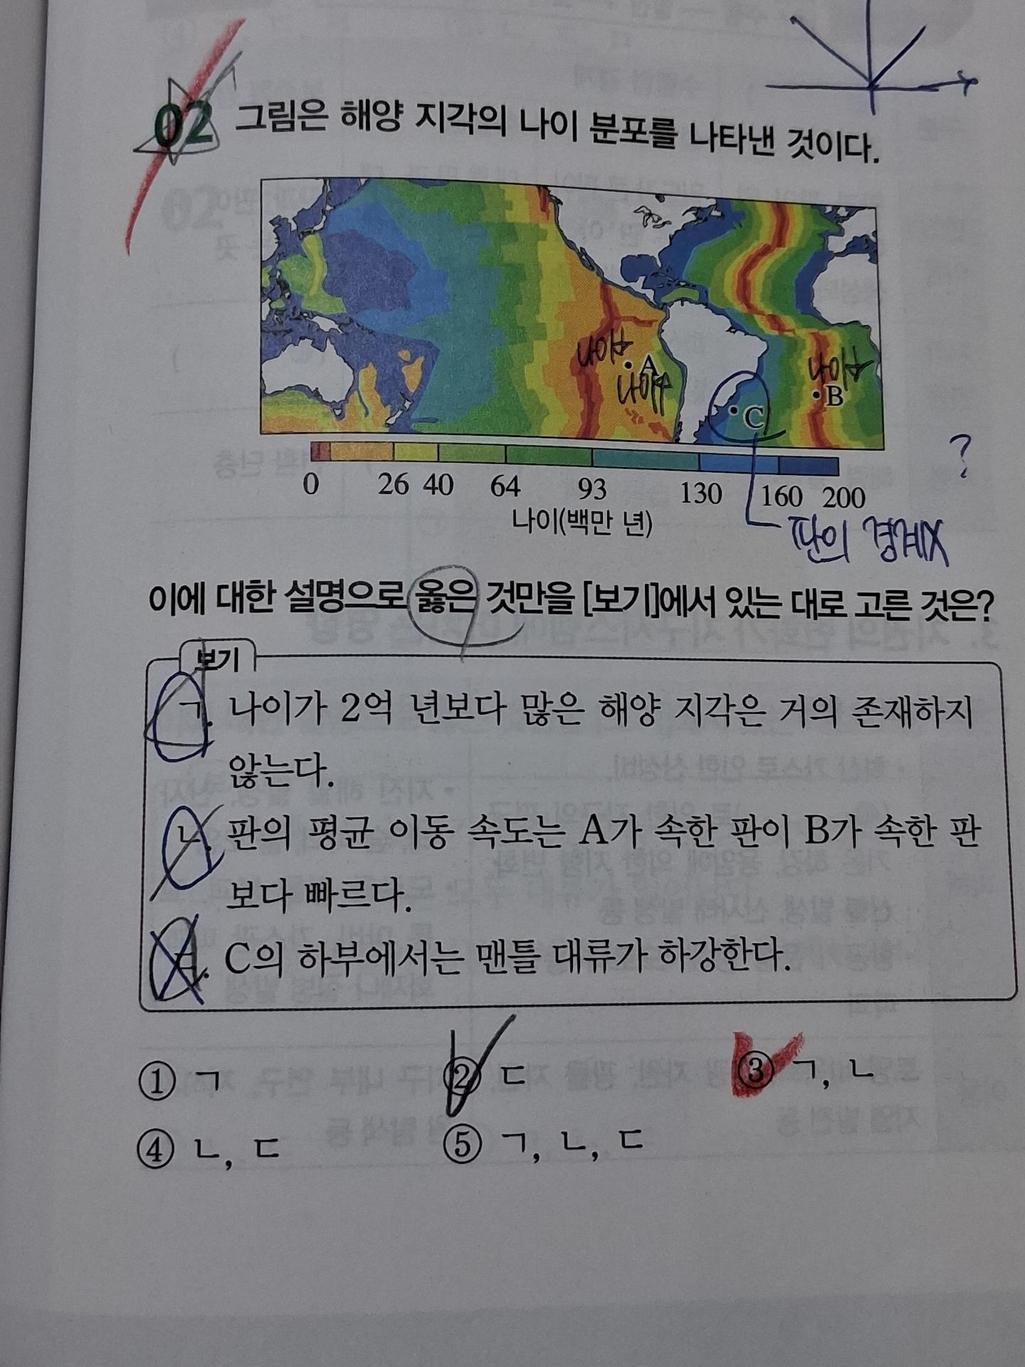 02 그림은 해양 지각의 나이 분포를 나타낸 것이다.
나이↓
A
나이↓
나이↓
B
C
0 26 40 64 93 130 160 200
나이(백만 년)
?
판의 경계X
이에 대한 설명으로 옳은 것만을 [보기]에서 있는 대로 고른 것은?
보기
ㄱ. 나이가 2억 년보다 많은 해양 지각은 거의 존재하지
않는다.
ㄴ. 판의 평균 이동 속도는 A가 속한 판이 B가 속한 판
보다 빠르다.
ㄷ. C의 하부에서는 맨틀 대류가 하강한다.
① ㄱ ② ㄷ ③ ㄱ, ㄴ
④ ㄴ, ㄷ ⑤ ㄱ, ㄴ, ㄷ